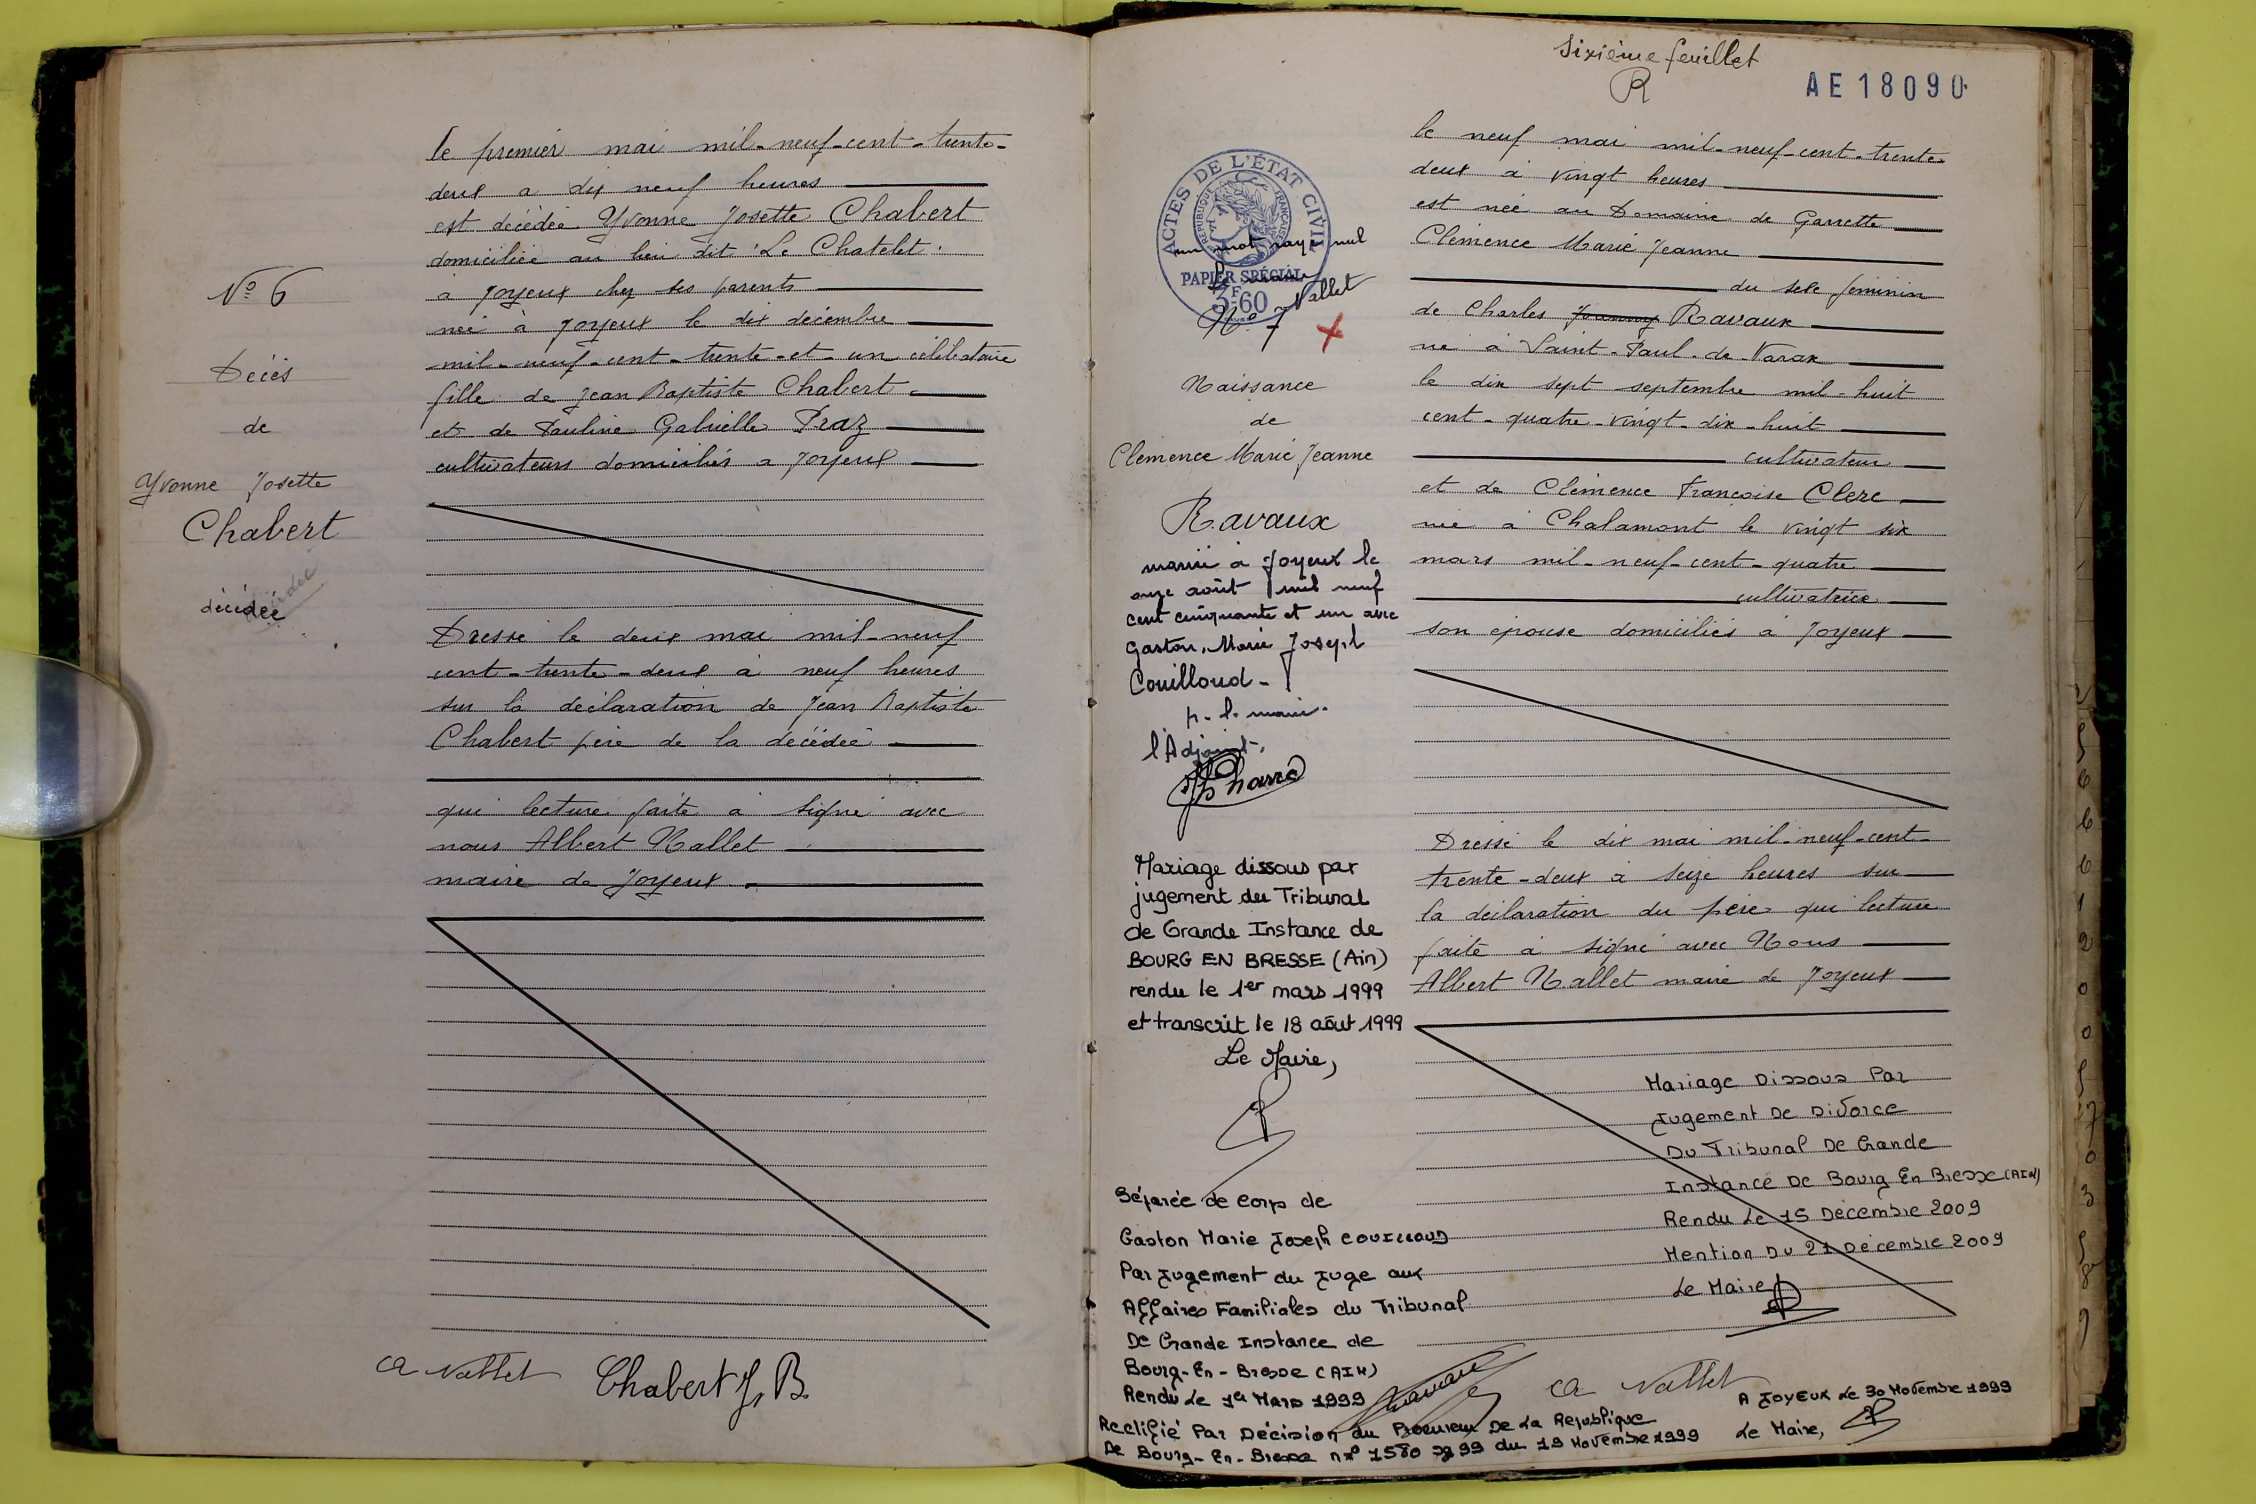 N° 6
Décès
de
Yvonne Josette
Chabert
décédée
le premier mai mil-neuf-cent-trente-
deux a dix neuf heures
est décédée Yvonne Josette Chabert
domiciliée au lieu dit "Le Chatelet"
à Joyeux chez ses parents
née à Joyeux le dix décembre
mil-neuf-cent-trente-et-un célibataire
fille de Jean Baptiste Chabert
et de Pauline Gabrielle Praz
cultivateurs domiciliés a Joyeux
Dressé le deux mai mil-neuf
cent-trente-deux à neuf heures
sur la déclaration de Jean Baptiste
Chabert père de la décédée
qui lecture faite à signé avec
nous Albert Nallet
maire de Joyeux
A Nallet Chabert J. B.
Sixième feuillet
R
AE 18090
ACTES DE L'ÉTAT CIVIL
REPUBLIQUE FRANÇAISE
PAPIER SPÉCIAL
3F.60
un mot rayé nul
Nallet
N° 7
Naissance
de
Clémence Marie Jeanne
Ravaux
mariée à Joyeux le
onze août mil neuf
cent cinquante et un avec
Gaston, Marie Joseph
Couilloud -
p. l. maire.
l'Adjoint,
Mariage dissous par
jugement du Tribunal
de Grande Instance de
BOURG EN BRESSE (Ain)
rendu le 1er mars 1999
et transcrit le 18 août 1999
Le Maire,
Séparée de corps de
Gaston Marie Joseph COUILLOUD
Par Jugement du Juge aux
Affaires Familiales du Tribunal
De Grande Instance de
Bourg-En-Bresse (AIN)
Rendu Le 1er Mars 1999
Rectifié Par Décision du Procureur De La République
De Bourg-En-Bresse n° 1580 99 du 19 Novembre 1999
le neuf mai mil-neuf-cent-trente-
deux à vingt heures
est née au Domaine de Garrette
Clémence Marie Jeanne
du sexe féminin
de Charles Ravaux
né à Saint-Paul-de-Varax
le dix sept septembre mil-huit
cent-quatre-vingt-dix-huit
cultivateur
et de Clémence Françoise Clerc
née à Chalamont le vingt six
mars mil-neuf-cent-quatre
cultivatrice
son épouse domiciliés à Joyeux
Dressé le dix mai mil-neuf-cent-
trente-deux à seize heures sur
la déclaration du père qui lecture
faite à signé avec Nous
Albert Nallet maire de Joyeux
Mariage Dissous Par
Jugement De Divorce
Du Tribunal De Grande
Instance De Bourg En Bresse (AIN)
Rendu Le 15 Décembre 2009
Mention Du 21 Décembre 2009
Le Maire
A Nallet
A JOYEUX Le 30 Novembre 1999
Le Maire,